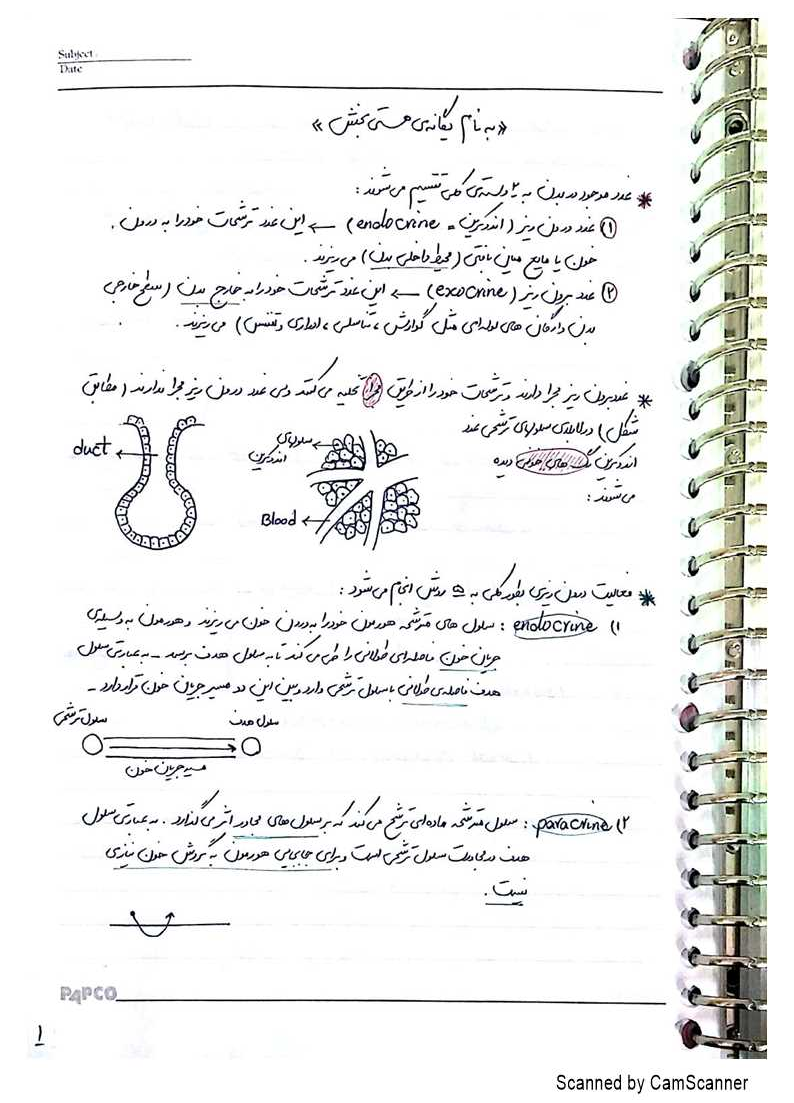 Subject:
Date
« به نام یگانه‌ی هستی بخش »
* غدد موجود در بدن به ۲ دسته‌ی کلی تقسیم می شوند :
① غدد درون ریز (اندوکرین = endocrine) ← این غدد ترشحات خود را به درون
خون یا مایع میان بافتی (محیط داخلی بدن) می ریزند .
② غدد برون ریز (exocrine) ← این غدد ترشحات خود را به خارج بدن (سطح خارجی
بدن یا ارگان های لوله ای مثل گوارش ، تناسلی ، ادراری و تنفسی) می ریزند .
* غدد برون ریز مجرا دارند و ترشحات خود را از طریق مجرا تخلیه می کنند ولی غدد درون ریز مجرا ندارند ( مطابق
شکل) در لابلای سلولهای ترشحی غدد
اندوکرین رگ های خونی دیده
می شوند :
duct
سلولهای
اندوکرین
Blood
* فعالیت درون ریزی بطور کلی به ۵ روش انجام می شود :
۱) endocrine : سلول های مترشحه هورمون خود را به درون خون می ریزند و هورمون به وسیله‌ی
جریان خون فاصله ای طولانی را طی می کند تا به سلول هدف برسد - به عبارتی سلول
هدف فاصله‌ی طولانی با سلول ترشحی دارد و بین این دو مسیر جریان خون قرار دارد -
سلول ترشحی
سلول هدف
مسیر جریان خون
۲) paracrine : سلول مترشحه ماده ای ترشح می کند که بر سلول های مجاور اثر می گذارد . به عبارتی سلول
هدف در مجاورت سلول ترشحی است و برای جابجایی هورمون به گردش خون نیازی
نیست .
PAPCO
۱
Scanned by CamScanner